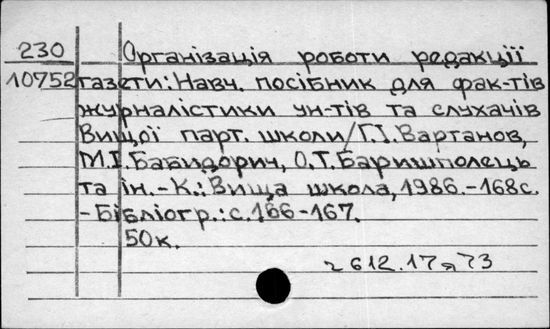 230 Організація роботи редакції
10752 газети: Навч. посібник для фак-тів
журналістики ун-тів та слухачів
Вищої парт. школи/Г.І.Вартанов,
М.І.Бабидорич, О.Т.Баришполець
та ін.-К.: Вища школа, 1986.-168с.
-Бібліогр.: с.166-167.
50к.
ч 612.17я73